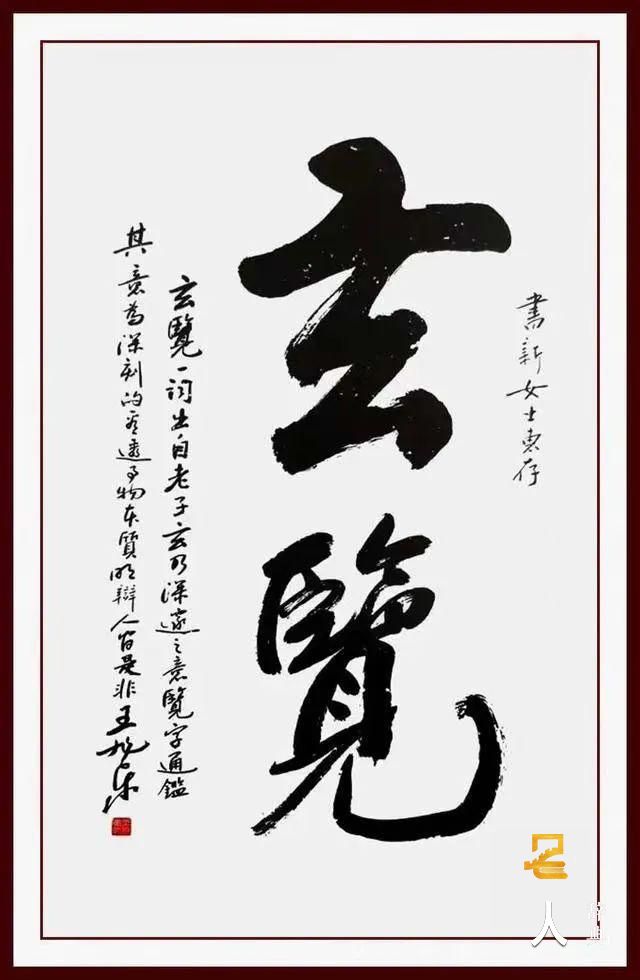 書新女士惠存
玄覽
玄覽一词出自老子玄乃深邃之意覽字通鑑
其意為深刻的看透事物本質明辯人间是非王
人